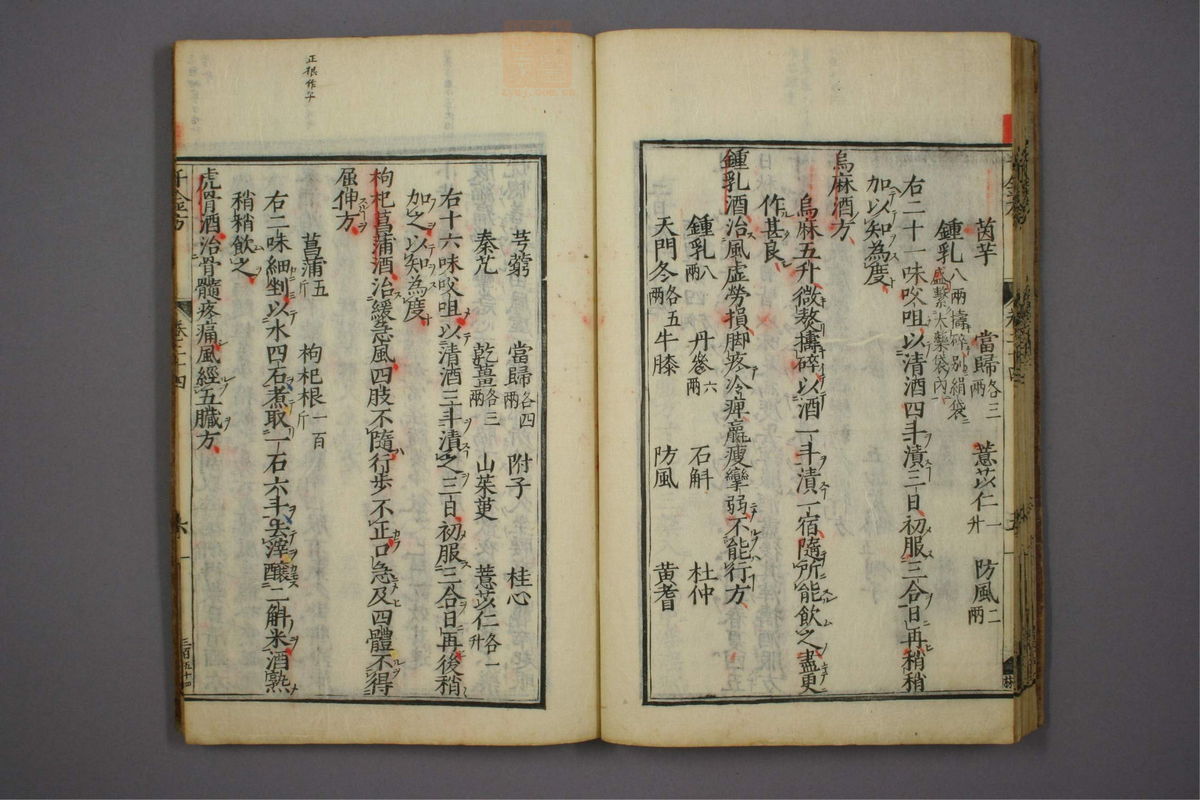 茵芋 當歸各三兩 薏苡仁一升 防風二兩
鍾乳八兩擣碎別絹袋盛繫大藥袋內
右二十一味㕮咀以清酒四斗漬三日初服三合日再稍稍
加以知為度
烏麻酒方
烏麻五升微熬擣碎以酒一斗漬一宿隨所能飲之盡更
作甚良
鍾乳酒治風虛勞損脚疼冷痺羸瘦攣弱不能行方
鍾乳八兩 丹參六兩 石斛 杜仲
天門冬各五兩 牛膝 防風 黃耆
芎藭 當歸各四兩 附子 桂心
秦艽 乾薑各三兩 山茱萸 薏苡仁各一升
右十六味㕮咀以清酒三斗漬之三日初服三合日再後稍
加之以知為度
枸杞菖蒲酒治緩急風四肢不隨行步不正口急及四體不得
屈伸方
菖蒲五斤 枸杞根一百斤
右二味細剉以水四石煮取一石六斗去滓釀二斛米酒熟
稍稍飲之
虎骨酒治骨髓疼痛風經五臟方
千金方 卷二十四 三百五十四
正根作子